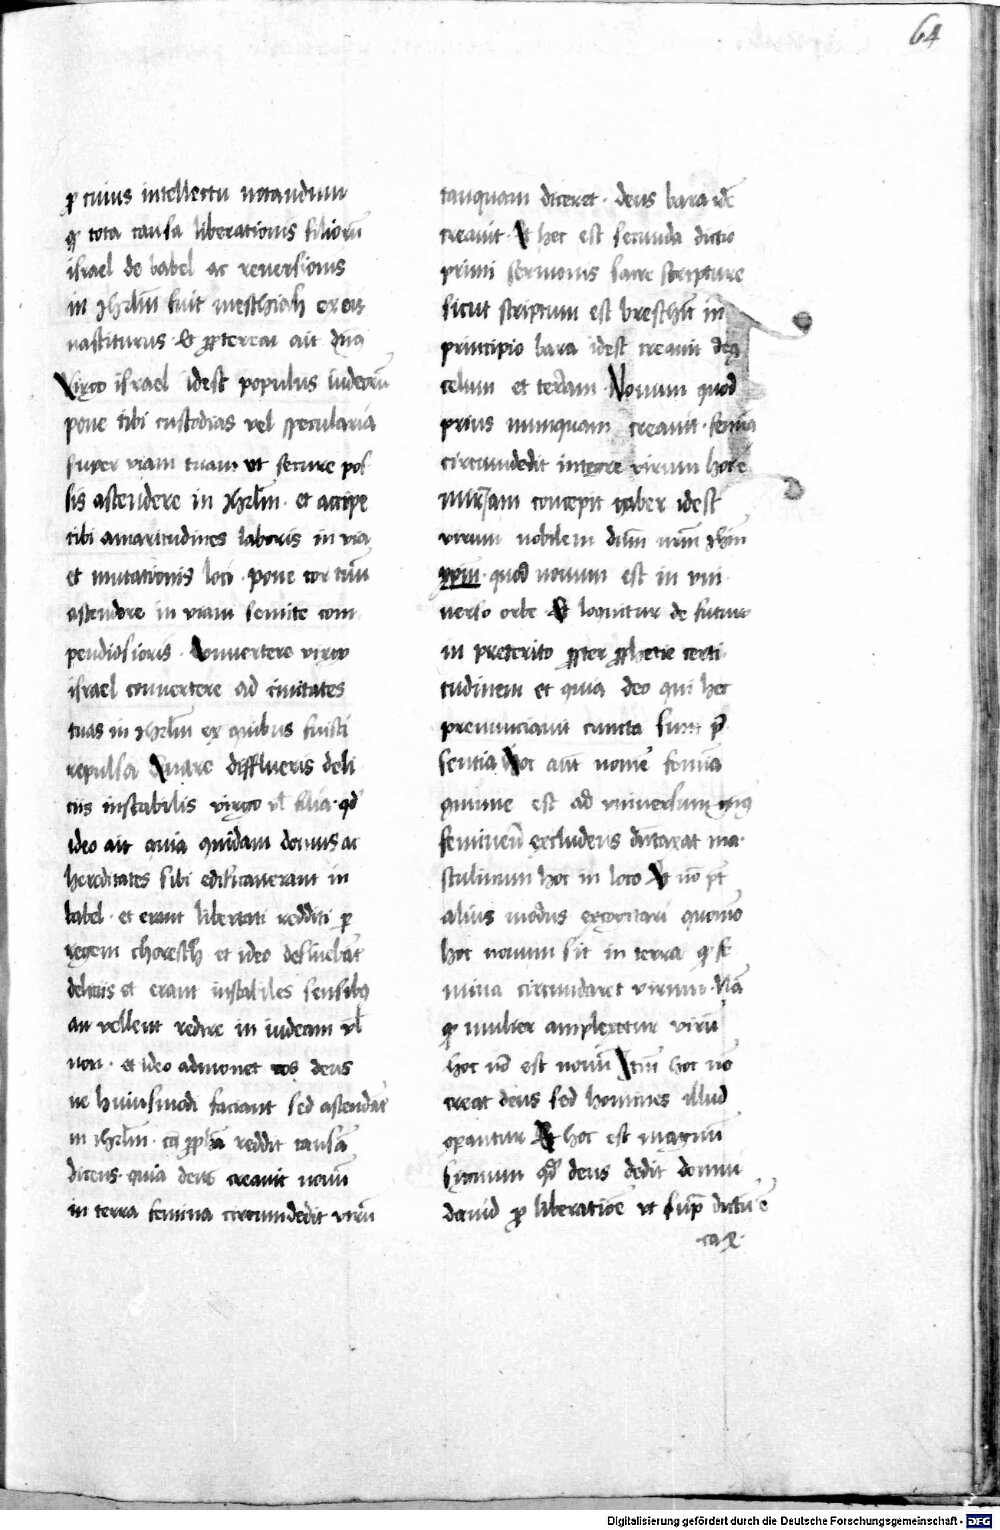 64
ꝓ cuius intellectu notandum
ꝙ tota causa liberationis filiorū
israel de babel ac reversionis
in Jhrlm̄ fuit meschiah ex eis
nasciturus · Et ꝓpterea ait dn̄s
Virgo israel idest populus iudeorū
pone tibi custodias vel specularia
super viam tuam ut secure pos
sis ascendere in Jhrlm̄ · et accipe
tibi amaritudines laboris in via
et mutationis loci · pone cor tuū
ascendere in viam semite com
pendiosioris · Convertere virgo
israel convertere ad civitates
tuas in Jhrlm̄ ex quibus fuisti
repulsa Quare difflueris deli
ciis instabilis virgo vl̄ filia · qd̄
ideo ait quia quidam domus ac
hereditates sibi edificaverant in
babel · et erant libertati redditi ꝑ
regem choresch et ideo defluebāt
deliciis et erant instabiles sensibꝰ
an vellent redire in iudeam vl̄
non · et ideo admonet eos deus
ne huiusmodi faciant sed ascendāt
in Jhrlm̄ · reddit causā
dicens · quia deus creavit novū
in terra femina circumdedit virū
tanquam diceret · deus bara idē
creavit · Et hec est secunda dictio
primi sermonis sacre scripture
sicut scriptum est breschit in
principio bara idest creavit deꝰ
celum et terram · Novum quod
prius nunquam creavit · femīa
circumdedit integre virum hoc ē
Miriam concepit gaber idest
virum nobilem dn̄m nrm̄ Jhm̄
xpm̄ · quod novum est in uni
verso orbe · Et loquitur de futuro
in preterito ꝓpter ꝓphetie certi
tudinem et quia deo qui hec
prenunciavit cuncta sunt pr̄
sentia Hoc aūt nomē femīa
genus
femineū excludens dūtaxat ma
sculinum hoc in loco Et nō pt̄
alius modus excogitari quomō
hoc novum sit in terra ꝙ fe
mina circumdaret virum · Nā
ꝙ mulier amplexetur virū
hoc nō est novū Itm̄ hoc nō
creat deus sed homines illud
operantur Et hoc est magnū
qd̄ deus dedit domui
david ꝓ liberatiōe ut supͣ dictū ē